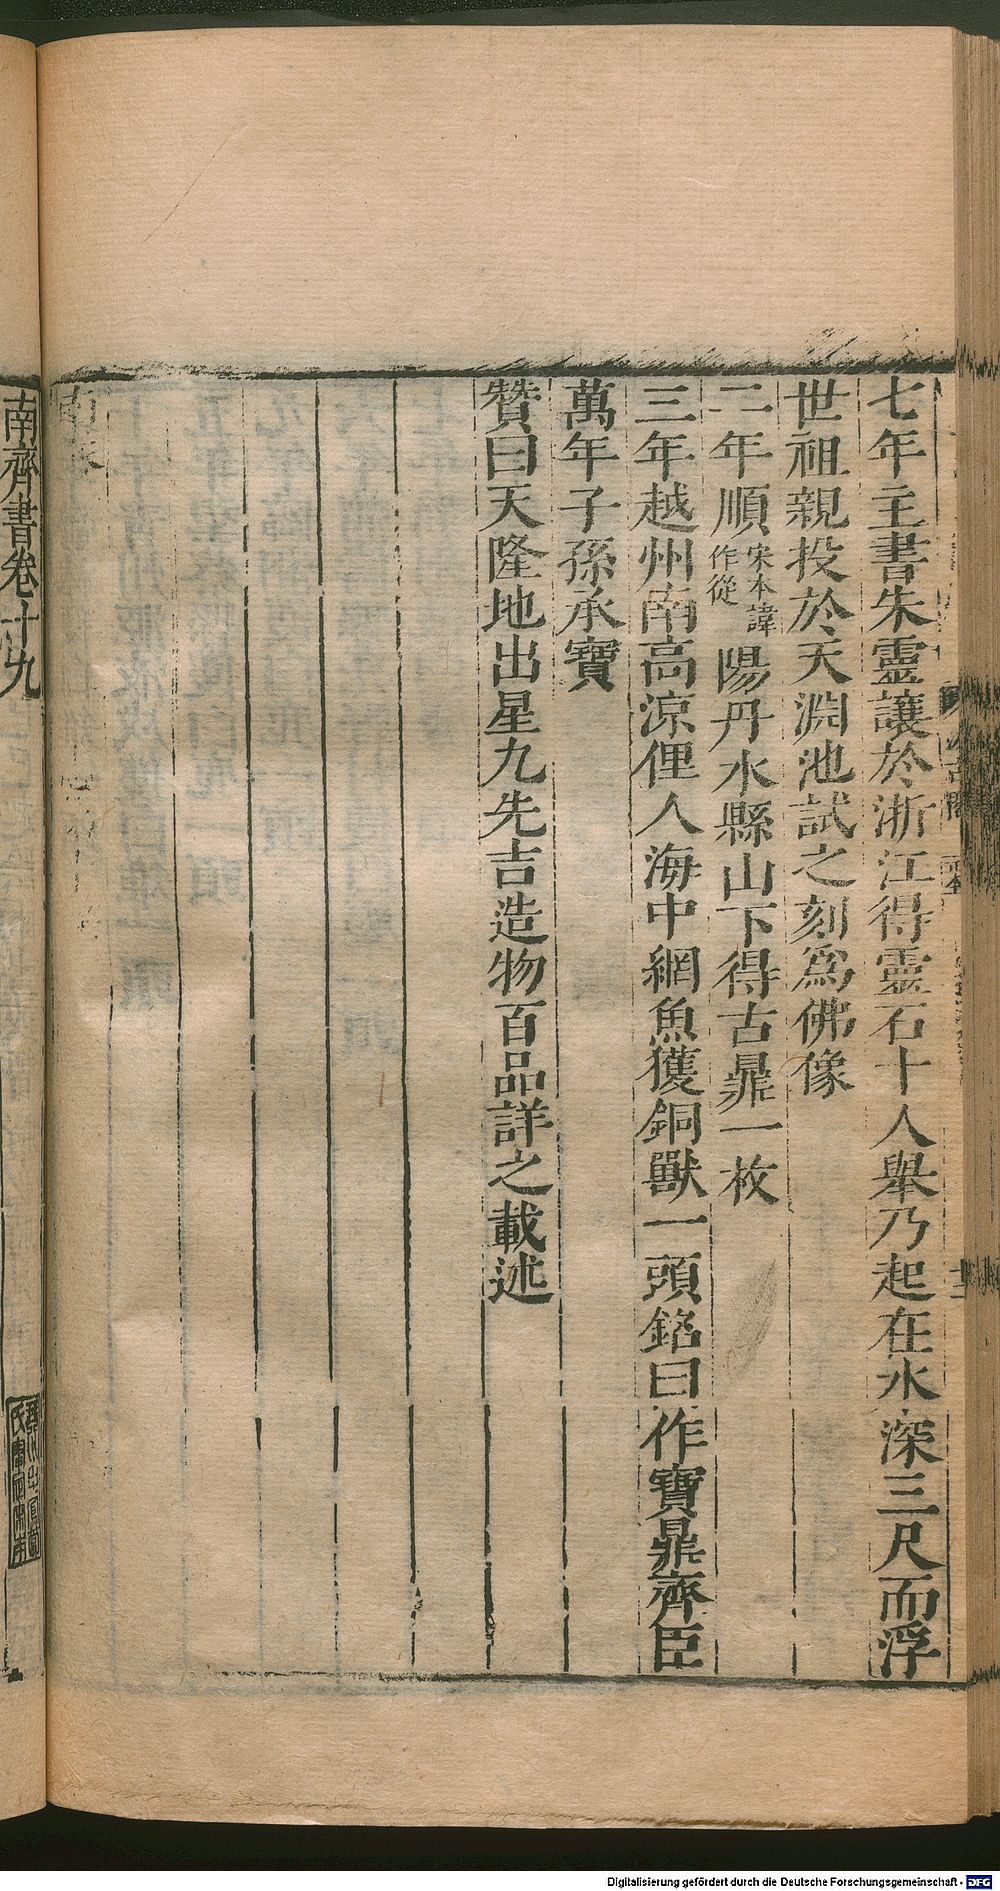 七年主書朱靈讓於浙江得靈石十人舉乃起在水深三尺而浮
世祖親投於天淵池試之刻爲佛像
二年順宋本諱作從陽丹水縣山下得古鼎一枚
三年越州南高涼俚人海中網魚獲銅獸一頭銘曰作寶鼎齊臣
萬年子孫承寶
贊曰天降地出星九先吉造物百品詳之載述
南齊書卷十九
Digitalisierung gefördert durch die Deutsche Forschungsgemeinschaft - DFG